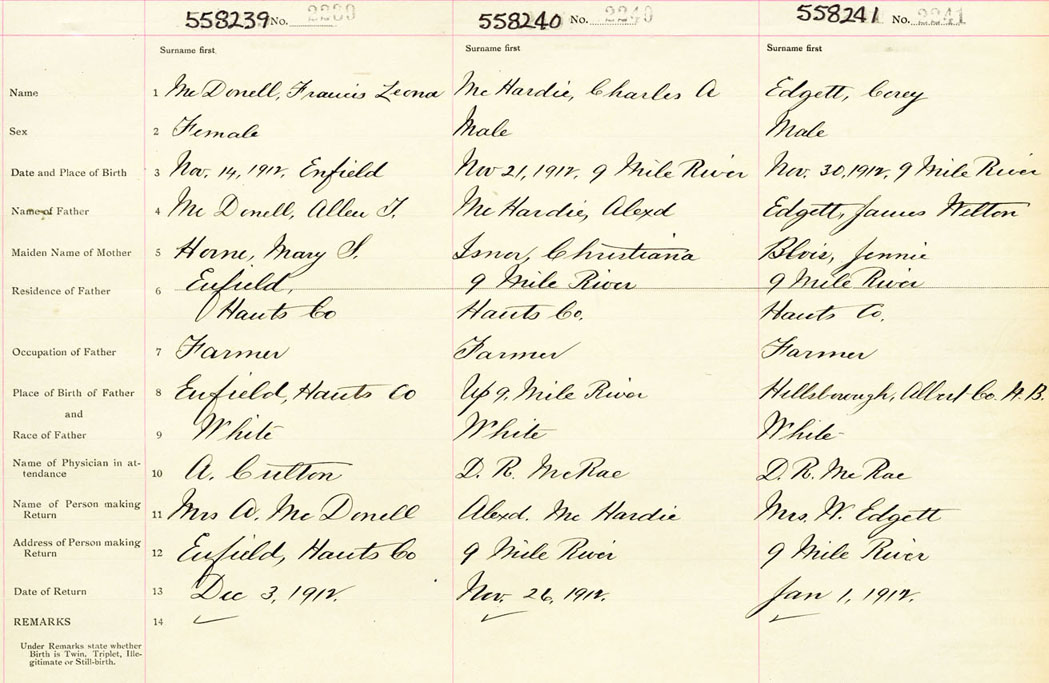 558239 No. 2239 558240 No. 2240 558241 No. 2241
Surname first. Surname first Surname first
Name 1 Mc Donell, Francis Leona Mc Hardie, Charles A Edgett, Corey
Sex 2 Female Male Male
Date and Place of Birth 3 Nov. 14, 1912. Enfield Nov 21, 1912. 9 Mile River Nov. 30, 1912, 9 Mile River
Name of Father 4 Mc Donell, Allen Mc Hardie, Alexd Edgett, James Wilton
Maiden Name of Mother 5 Horne, Mary S. Isnor, Christiana Blois, Jennie
Residence of Father 6 Enfield, 9 Mile River 9 Mile River
Hants Co Hants Co. Hants Co.
Occupation of Father 7 Farmer Farmer Farmer
Place of Birth of Father 8 Enfield, Hants Co Up 9, Mile River Hillsborough, Albert Co. N.B.
and
Race of Father 9 White White White
Name of Physician in at-
tendance 10 A. Culton D. R. McRae D. R. Mc Rae
Name of Person making
Return 11 Mrs A. Mc Donell Alexd. Mc Hardie Mrs. W. Edgett
Address of Person making
Return 12 Enfield, Hants Co 9 Mile River 9 Mile River
Date of Return 13 Dec 3, 1912. Nov. 26, 1912. Jan 1, 1912.
REMARKS 14
Under Remarks state whether
Birth is Twin, Triplet, Ille-
gitimate or Still-birth.